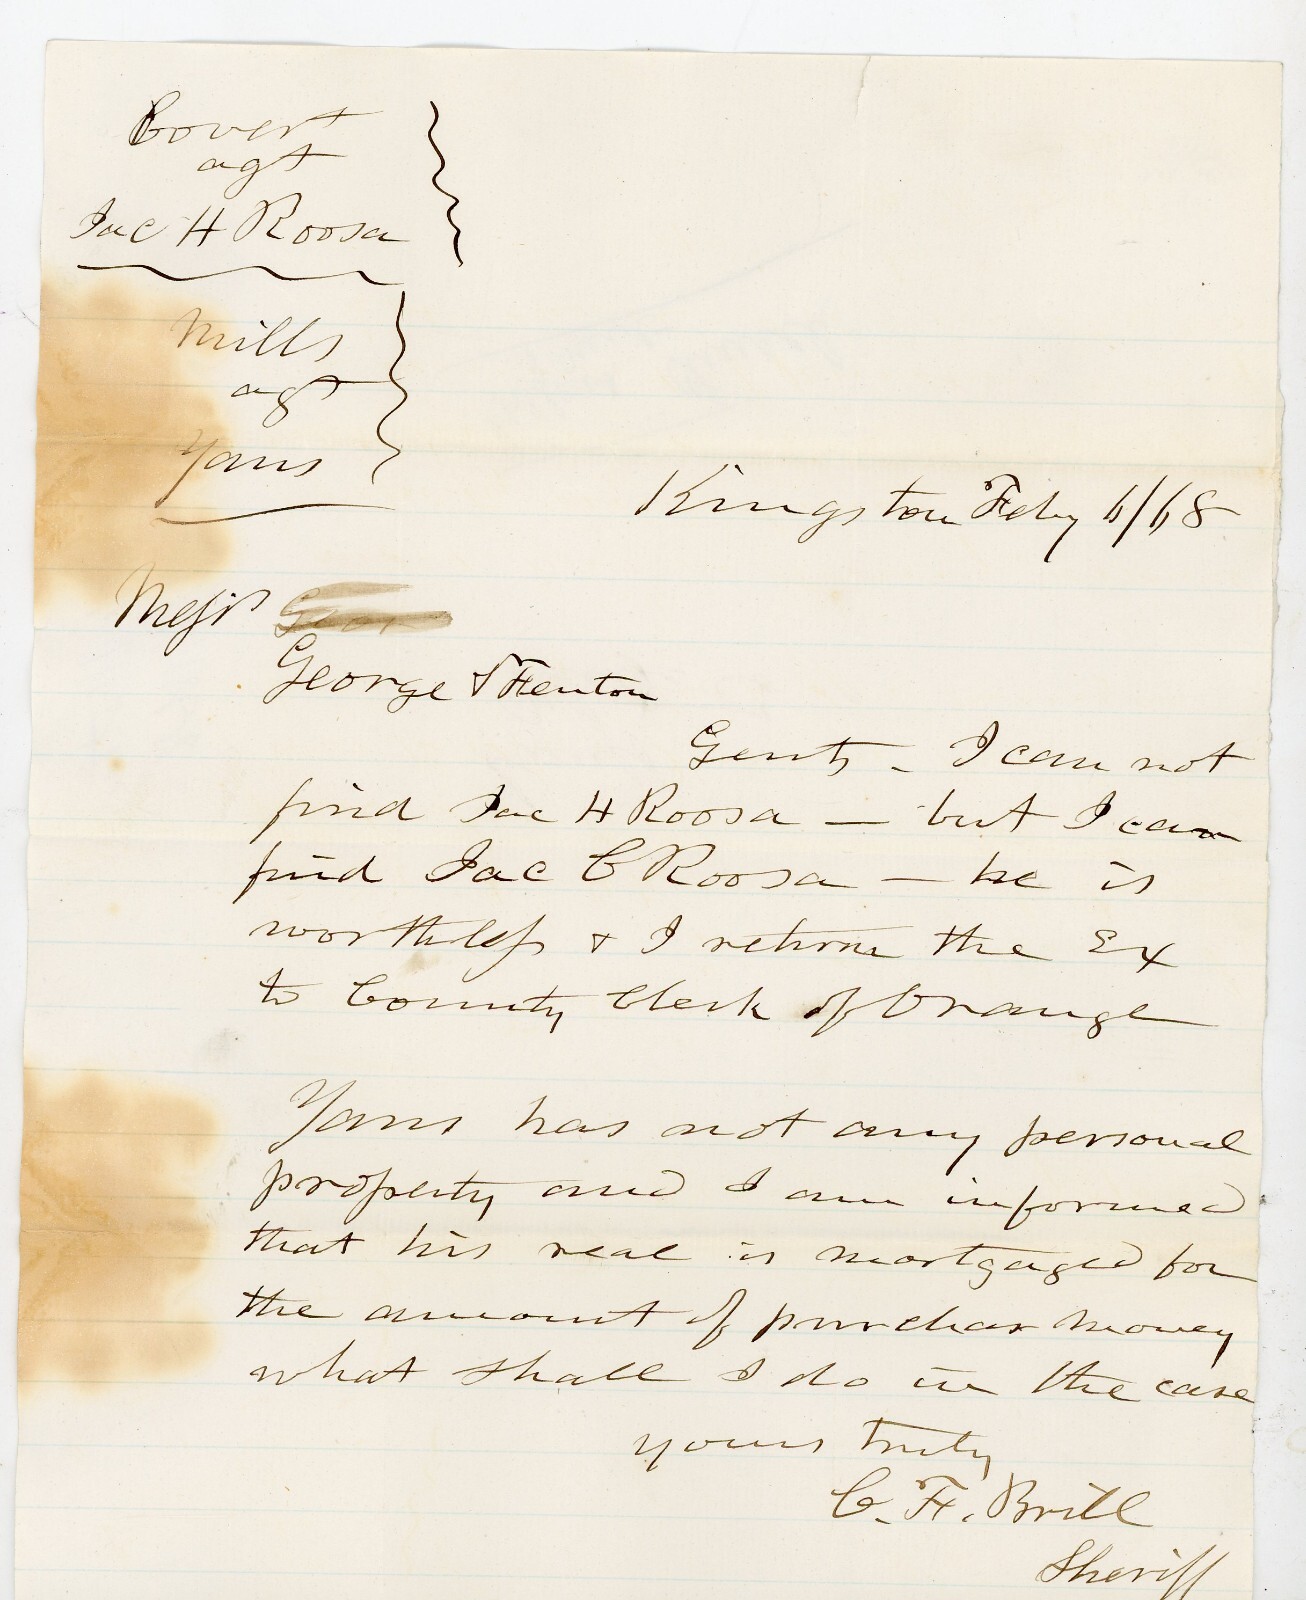 Covert
agt
Jac H Roosa
Mills
agt
Yans
Kingston Feby 6/68
Messrs Geor
George & Fenton
Gents - I can not
find Jac H Roosa — but I can
find Jac C Roosa — he is
worthless & I return the Ex
to County Clerk of Orange
Yans has not any personal
property and I am informed
that his real is mortgaged for
the amount of purchas money
what shall I do in the case
yours truly
C. F. Brill
Sheriff